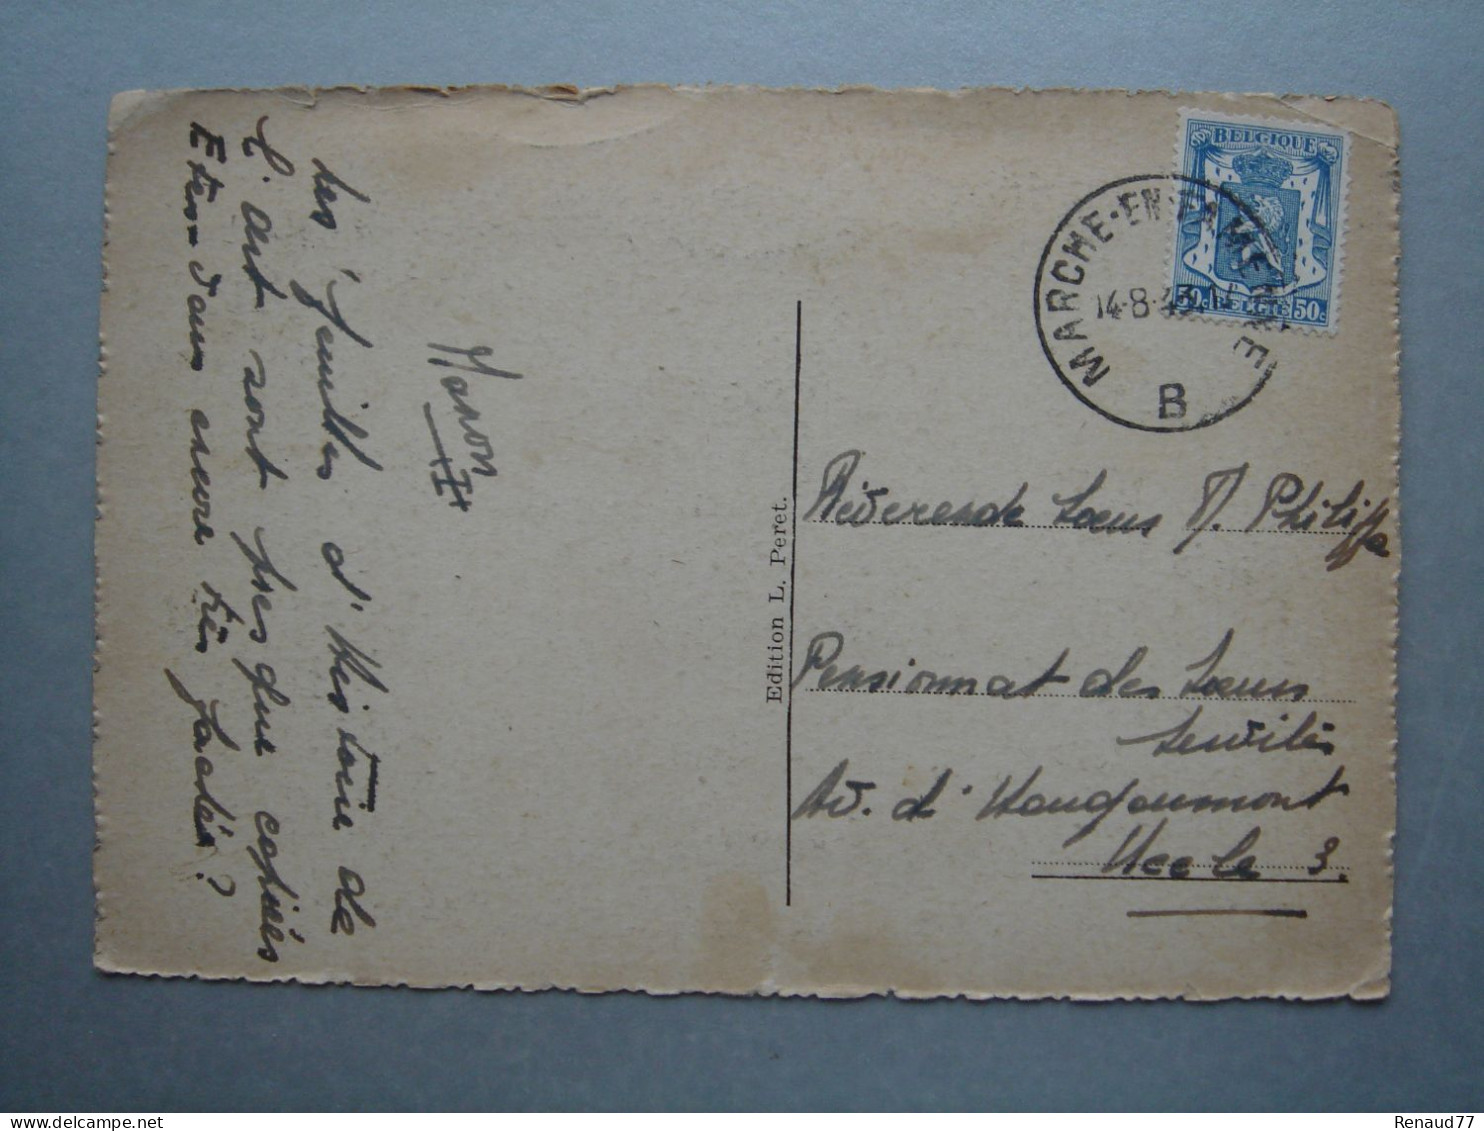 Les feuilles d'Histoire de
l'art sont presque copiées
Etes-vous encore très fachée?
Manon
BELGIQUE
50c BELGIE 50c
MARCHE-EN-FAMENNE
14-8-43
B
Edition L. Peret.
Révérende Soeur M. Philippe
Pensionnat des Soeurs
Servites
Av. d'Hougoumont
Uccle 3.
Renaud77